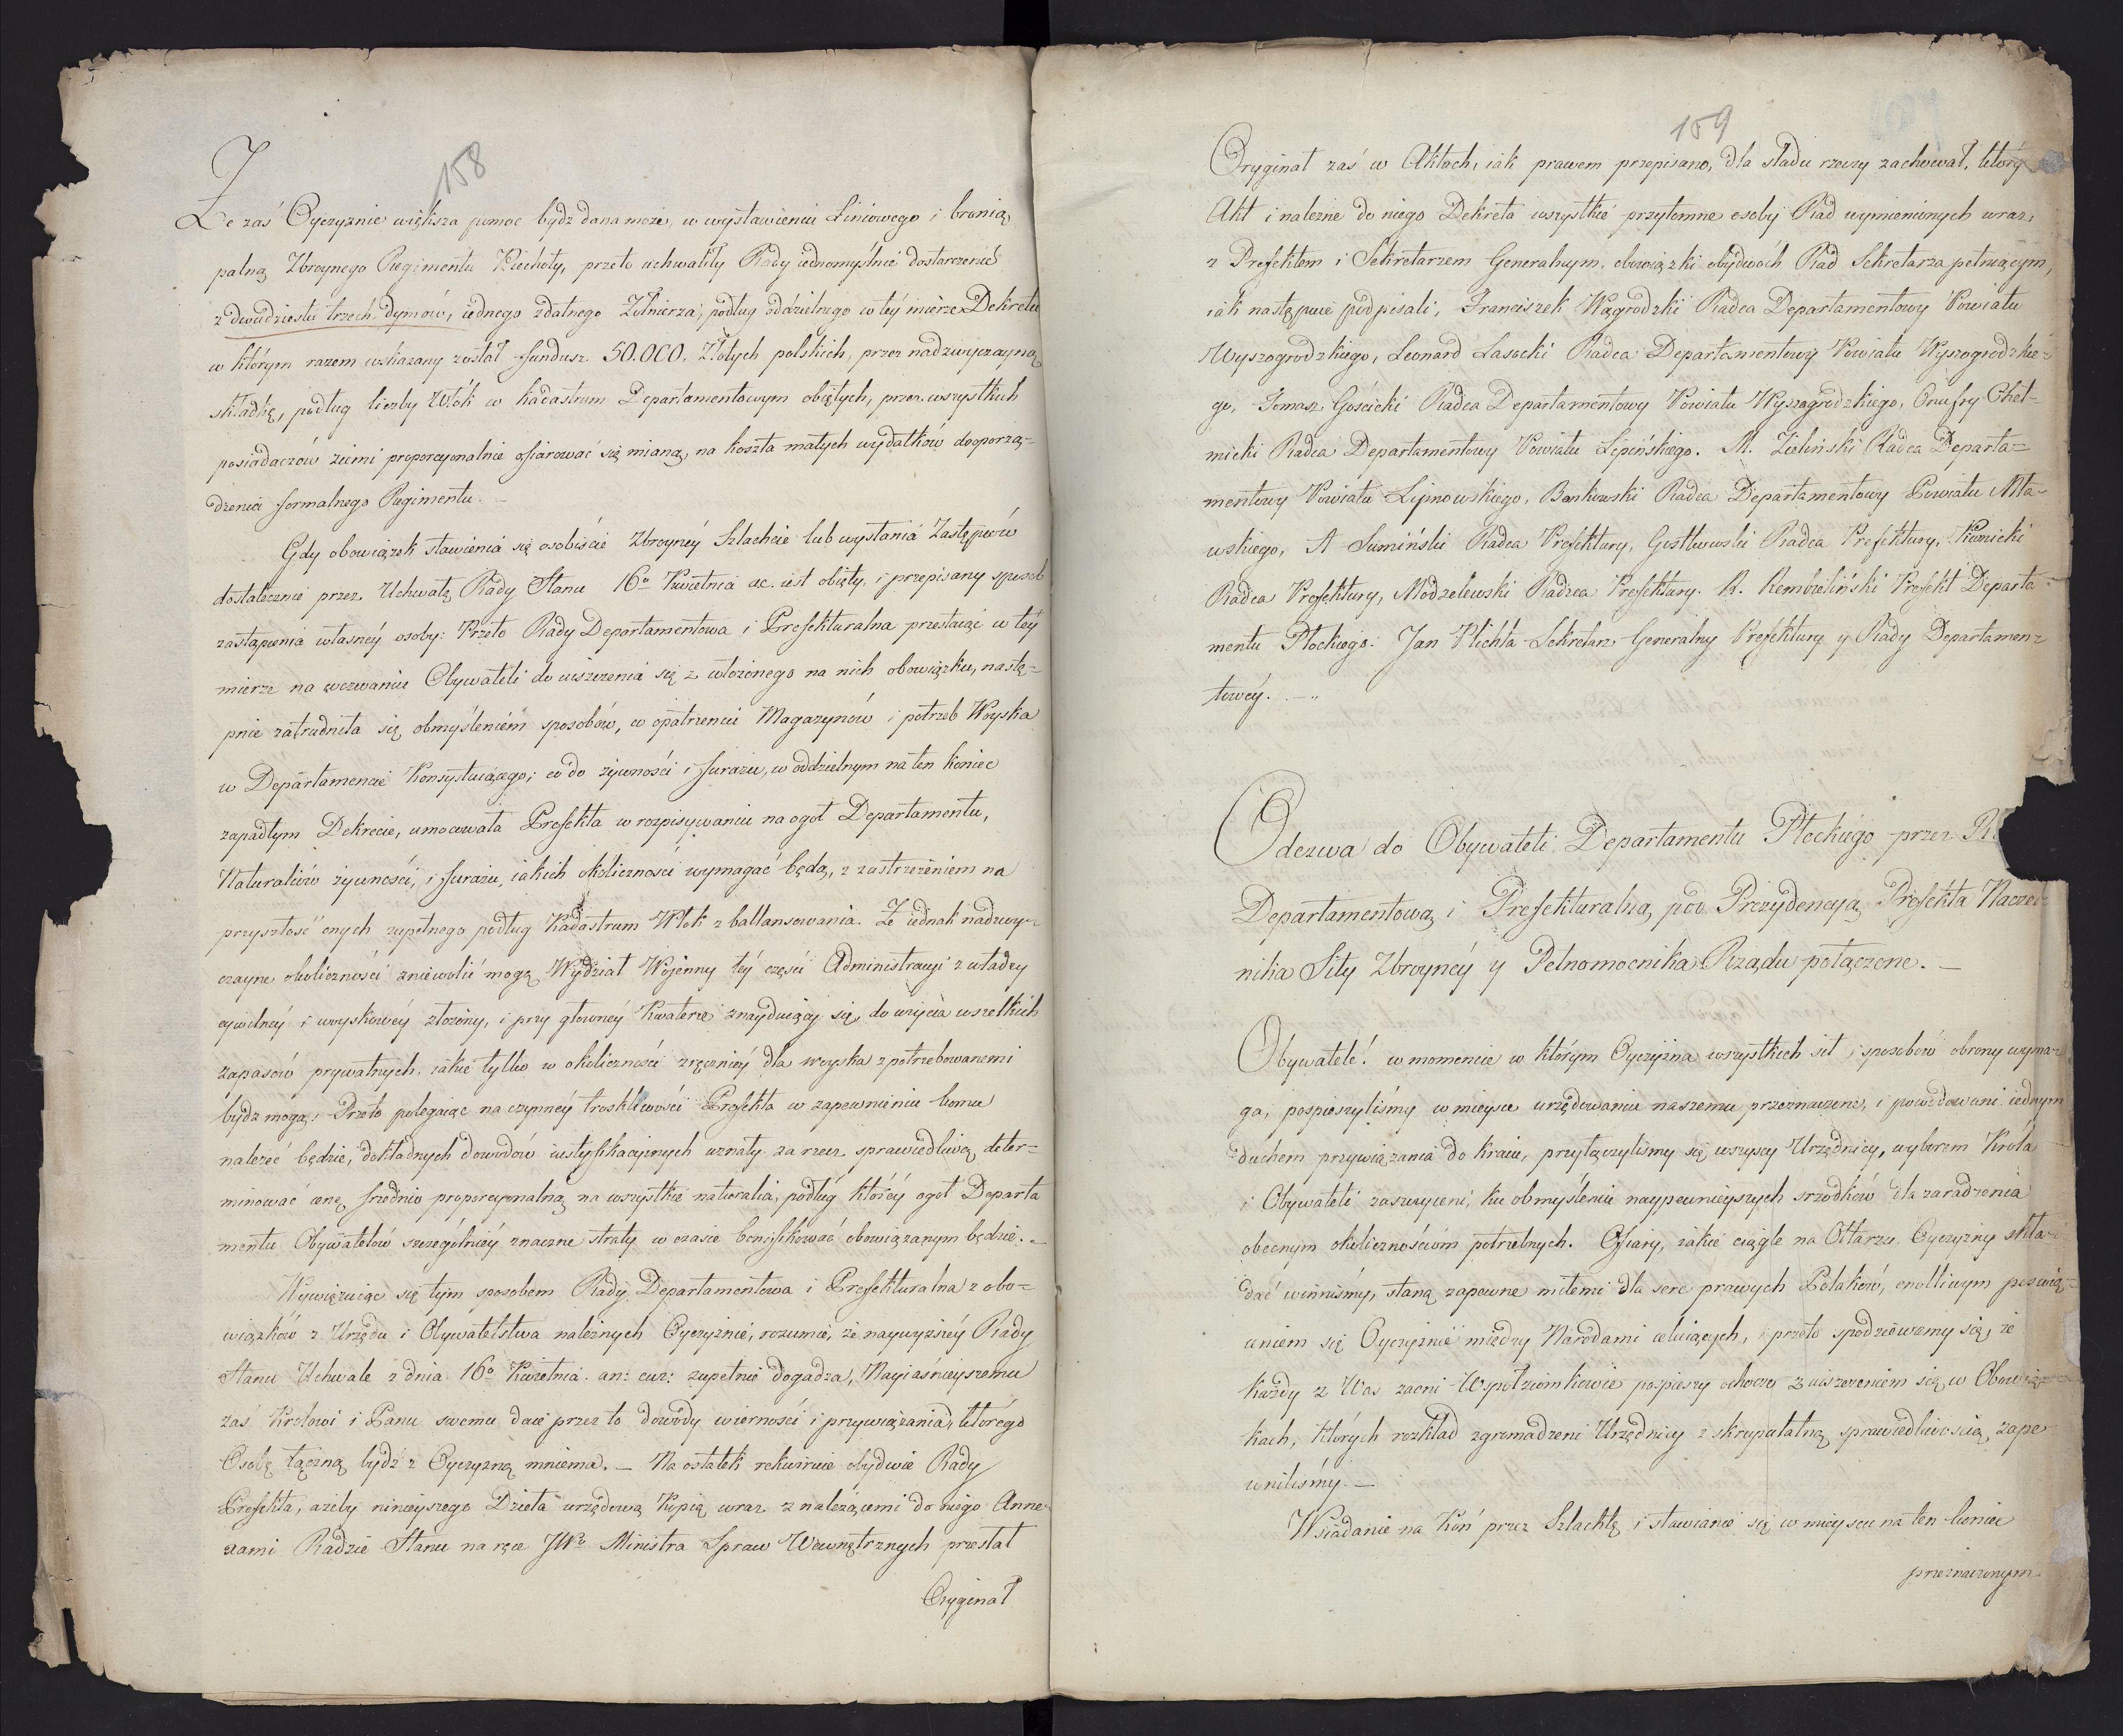 158
Że zaś Oyczyznie większa pomoc bydz dana może, w wystawieniu Liniowego i bronią
palną Zbroynego Regimentu Piechoty, przeto uchwaliły Rady iednomyślnie dostarczenie
z dwudziestu trzech dymów, iednego zdatnego Żołnierza, podług oddzielnego w tey mierze Dekretu
w którym razem wskazany został fundusz 50.000. Złotych polskich, przez nadzwyczayną
składkę, podług liczby Włók w Kadastrum Departamentowym obiętych, przez wszystkich
posiadaczów ziemi proporcyonalnie ofiarować się mianą, na koszta małych wydatków do porzą=
dzenia formalnego Regimentu. —
Gdy obowiązek stawienia się osobiście Zbroyney Szlachcie lub wysłania Zastępców
dostatecznie przez Uchwałę Rady Stanu 16o Kwietnia ac. iest obięty, i przepisany sposob
zastąpienia własney osoby: Przeto Rady Departamentowa i Prefekturalna przestaiąc w tey
mierze na wezwaniu Obywateli do uiszczenia się z włożonego na nich obowiązku, nastę=
pnie zatrudniła się obmyśleniem sposobów, w opatrzeniu Magazynów i potrzeb Woyska
w Departamencie Konsystuiącego; co do żywności i furażu, w oddzielnym na ten koniec
zapadłym Dekrecie, umocowała Prefekta w rozpisywaniu na ogół Departamentu,
Naturaliów żywności, i furażu, iakich okoliczności wymagać będą, z zastrzeżeniem na
przyszłość onych zupełnego podług Kadastrum Włok z ballansowania. Że iednak nadzwy=
czayne okoliczności zniewolić mogą Wydział Wojenny tey części Administracyi z władzy
cywilney i woyskowey złożony, i przy głowney Kwaterze znayduiący się, do użycia wszelkich
zapasów prywatnych, iakie tylko w okoliczności zręczniey dla woyska zpotrzebowanemi
bydz mogą: Przeto polegaiąc na czynney troskliwości Prefekta w zapewnieniu komu
należeć będzie, dokładnych dowodów iustyfikacyinych uznały za rzecz sprawiedliwą deter=
minować cenę srzednio proporcyonalną na wszystkie naturalia, podług którey ogół Departa
mentu Obywatelów szczególniey znaczne straty w czasie bonifikować obowiązanym będzie. —
Wywięzuiąc się tym sposobem Rady Departamentowa i Prefekturalna z obo=
wiązków z Urzędu i Obywatelstwa należnych Oyczyznie, rozumie, że naywyższey Rady
Stanu Uchwale z dnia 16o Kwietnia an: cur: zupełnie dogadza, Nayiaśnieyszemu
zaś Krolowi i Panu swemu daie przez to dowody wierności i przywiązania, którego
Osobę łączną bydź z Oyczyzną mniema. — Na ostatek rekwiruie obydwie Rady
Prefekta, ażeby ninieyszego Dzieła urzędową Kopią wraz z należącemi do niego Anne
xami Radzie Stanu na ręce JWo Ministra Spraw Wewnętrznych przesłał
Oryginał
159
Oryginał zaś w Aktach, iak prawem przepisano, dla sladu rzeczy zachował, który
Akt i należne do niego Dekreta wszystkie przytomne osoby Rad wymienionych wraz,
z Prefektem i Sekretarzem Generalnym, obowiązki obydwóch Rad Sekretarza pełniącym,
iak następuie podpisali, Franciszek Wągrodzki Radca Departamentowy Powiatu
Wyszogrodzkiego, Leonard Lasocki Radca Departamentowy Powiatu Wyszogrodzkie=
go, Tomasz Gościcki Radca Departamentowy Powiatu Wyszogrodzkiego, Onufry Cheł=
micki Radca Departamentowy Powiatu Lipińskiego. M. Zieliński Radca Departa=
mentowy Powiatu Lipnowskiego, Bonkowski Radca Departamentowy Powiatu Mła=
wskiego, A Sumiński Radca Prefektury, Gostkowski Radca Prefektury, Kanicki
Radca Prefektury, Modzelewski Radzca Prefektury. R. Rembieliński Prefekt Departa
mentu Płockiego. Jan Plichta Sekretarz Generalny Prefektury y Rady Departamen=
towey. —
Odezwa do Obywateli Departamentu Płockiego przez R
Departamentową i Prefekturalną, pod Prezydencyą Prefekta Naczel=
nika Siły Zbroyney y Pełnomocnika Rządu połączone. —
Obywatele! w momencie w którym Oyczyzna wszystkich sił i sposobów obrony wyma=
ga, pospieszyliśmy w mieysce urzędowaniu naszemu przeznaczone, i powodowani iednym
duchem przywiązania do kraiu, przyłączyliśmy się wszyscy Urzędnicy, wyborem Króla
i Obywateli zaszczyceni, ku obmyśleniu naypewnieyszych srzodków dla zaradzenia
obecnym okolicznościom potrzebnych. Ofiary, iakie ciągle na Ołtarzu Oyczyzny skła=
dać winniśmy, staną zapewne miłemi dla serc prawych Polaków, cnotliwym poswię=
ceniem się Oyczyznie między Narodami celuiących, i przeto spodziewamy się, że
każdy z Was zacni Wspołziomkowie pospieszy ochoczo z uiszczeniem się w Obowiąz=
kach, których rozkład zgromadzeni Urzędnicy z skrupulatną sprawiedliwością zape
wniliśmy. —
Wsiadanie na Koń przez Szlachtę i stawianie się w mieyscu na ten koniec
przeznaczonym